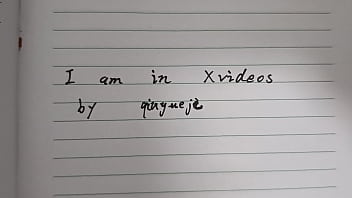 I am in Xvideos
by qingyueje